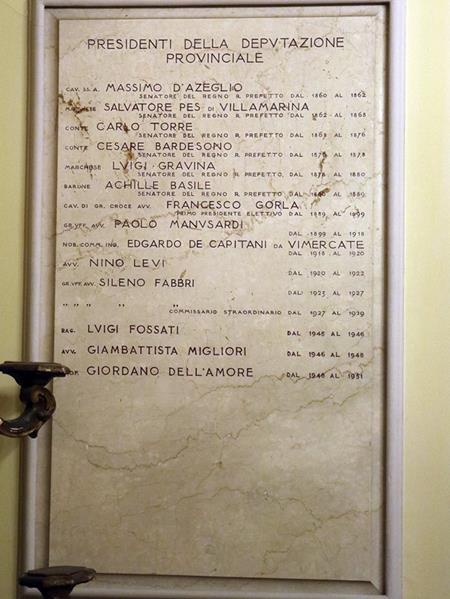 PRESIDENTI DELLA DEPVTAZIONE
PROVINCIALE
CAV. SS. A. MASSIMO D'AZEGLIO
SENATORE DEL REGNO R. PREFETTO DAL 1860 AL 1862
MARCHESE SALVATORE PES DI VILLAMARINA
SENATORE DEL REGNO R. PREFETTO DAL 1862 AL 1868
CONTE CARLO TORRE
SENATORE DEL REGNO R. PREFETTO DAL 1868 AL 1876
CONTE CESARE BARDESONO
SENATORE DEL REGNO R. PREFETTO DAL 1876 AL 1878
MARCHESE LVIGI GRAVINA
SENATORE DEL REGNO R. PREFETTO DAL 1878 AL 1880
BARONE ACHILLE BASILE
SENATORE DEL REGNO R. PREFETTO DAL 1880 AL 1889
CAV. DI GR. CROCE AVV. FRANCESCO GORLA
PRIMO PRESIDENTE ELETTIVO DAL 1889 AL 1899
GR. VFF. AVV. PAOLO MANVSARDI
DAL 1899 AL 1918
NOB. COMM. ING. EDGARDO DE CAPITANI DA VIMERCATE
DAL 1918 AL 1920
AVV. NINO LEVI DAL 1920 AL 1922
GR. VFF. AVV. SILENO FABBRI
DAL 1923 AL 1927
„ „ „ „
COMMISSARIO STRAORDINARIO DAL 1927 AL 1929
RAG. LVIGI FOSSATI DAL 1945 AL 1946
AVV. GIAMBATTISTA MIGLIORI DAL 1946 AL 1948
GIORDANO DELL'AMORE DAL 1948 AL 1951